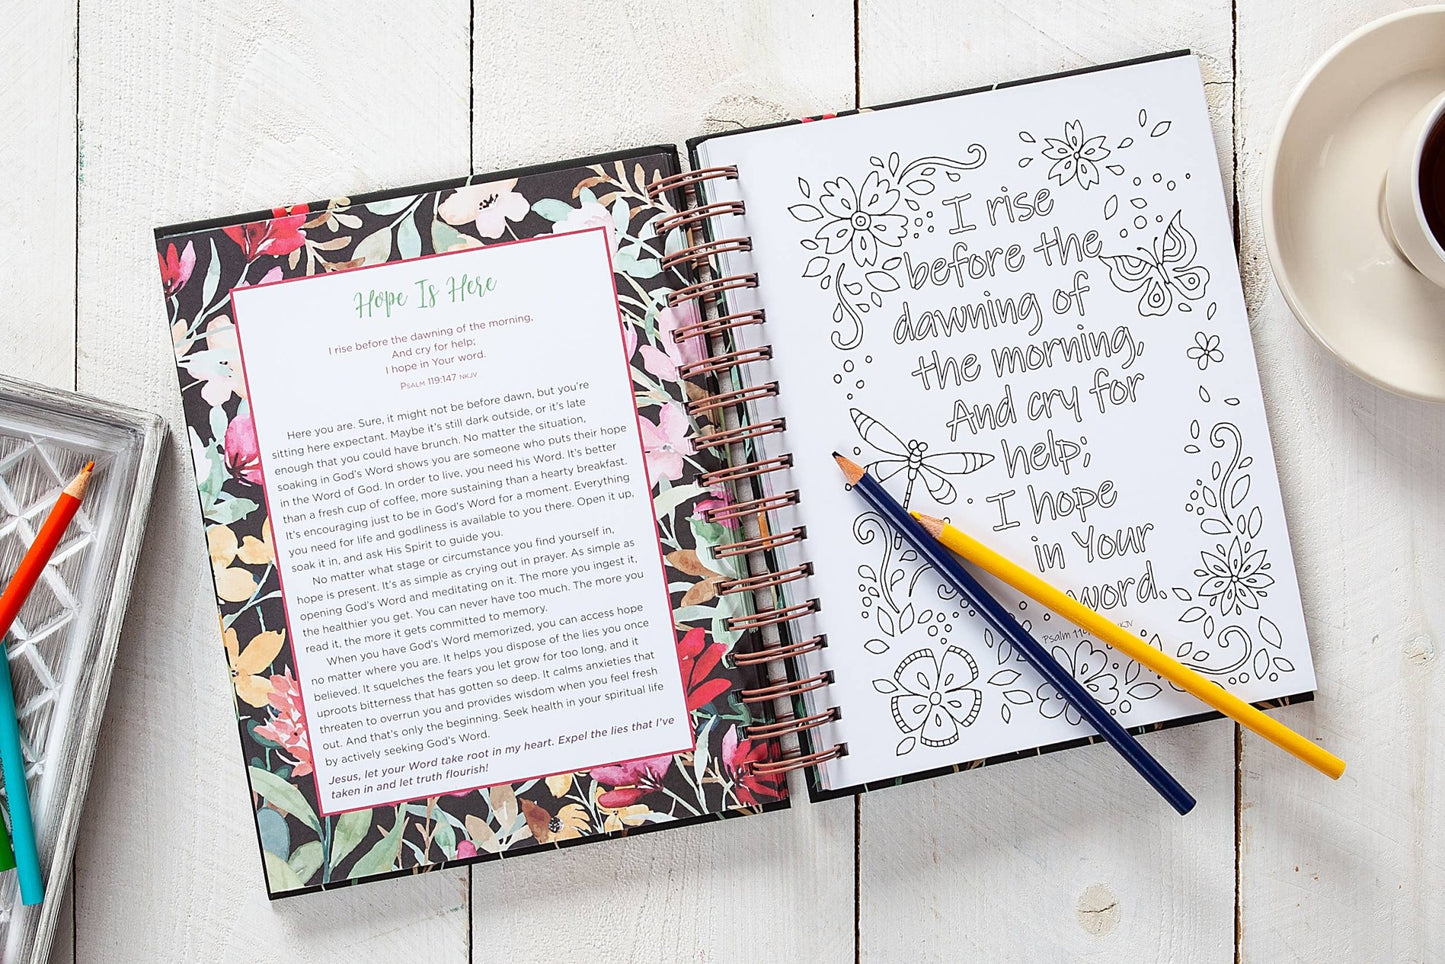 Hope Is Here
I rise before the dawning of the morning,
And cry for help;
I hope in Your word.
Psalm 119:147 NKJV
Here you are. Sure, it might not be before dawn, but you’re
sitting here expectant. Maybe it’s still dark outside, or it’s late
enough that you could have brunch. No matter the situation,
soaking in God’s Word shows you are someone who puts their hope
in the Word of God. In order to live, you need his Word. It’s better
than a fresh cup of coffee, more sustaining than a hearty breakfast.
It’s encouraging just to be in God’s Word for a moment. Everything
you need for life and godliness is available to you there. Open it up,
soak it in, and ask His Spirit to guide you.
No matter what stage or circumstance you find yourself in,
hope is present. It’s as simple as crying out in prayer. As simple as
opening God’s Word and meditating on it. The more you ingest it,
the healthier you get. You can never have too much. The more you
read it, the more it gets committed to memory.
When you have God’s Word memorized, you can access hope
no matter where you are. It helps you dispose of the lies you once
believed. It squelches the fears you let grow for too long, and it
uproots bitterness that has gotten so deep. It calms anxieties that
threaten to overrun you and provides wisdom when you feel fresh
out. And that’s only the beginning. Seek health in your spiritual life
by actively seeking God’s Word.
Jesus, let your Word take root in my heart. Expel the lies that I’ve
taken in and let truth flourish!
I rise
before the
dawning of
the morning,
And cry for
help;
I hope
in Your
word.
Psalm